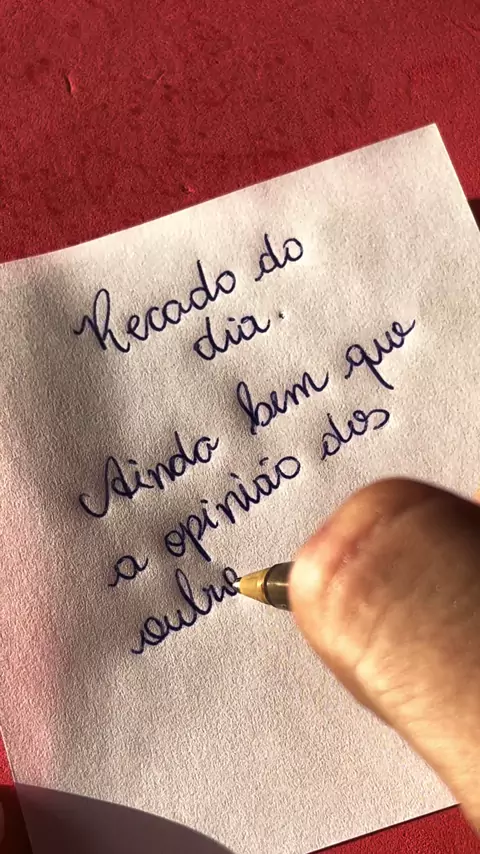 Recado do
dia.
Ainda bem que
a opinião dos
outro